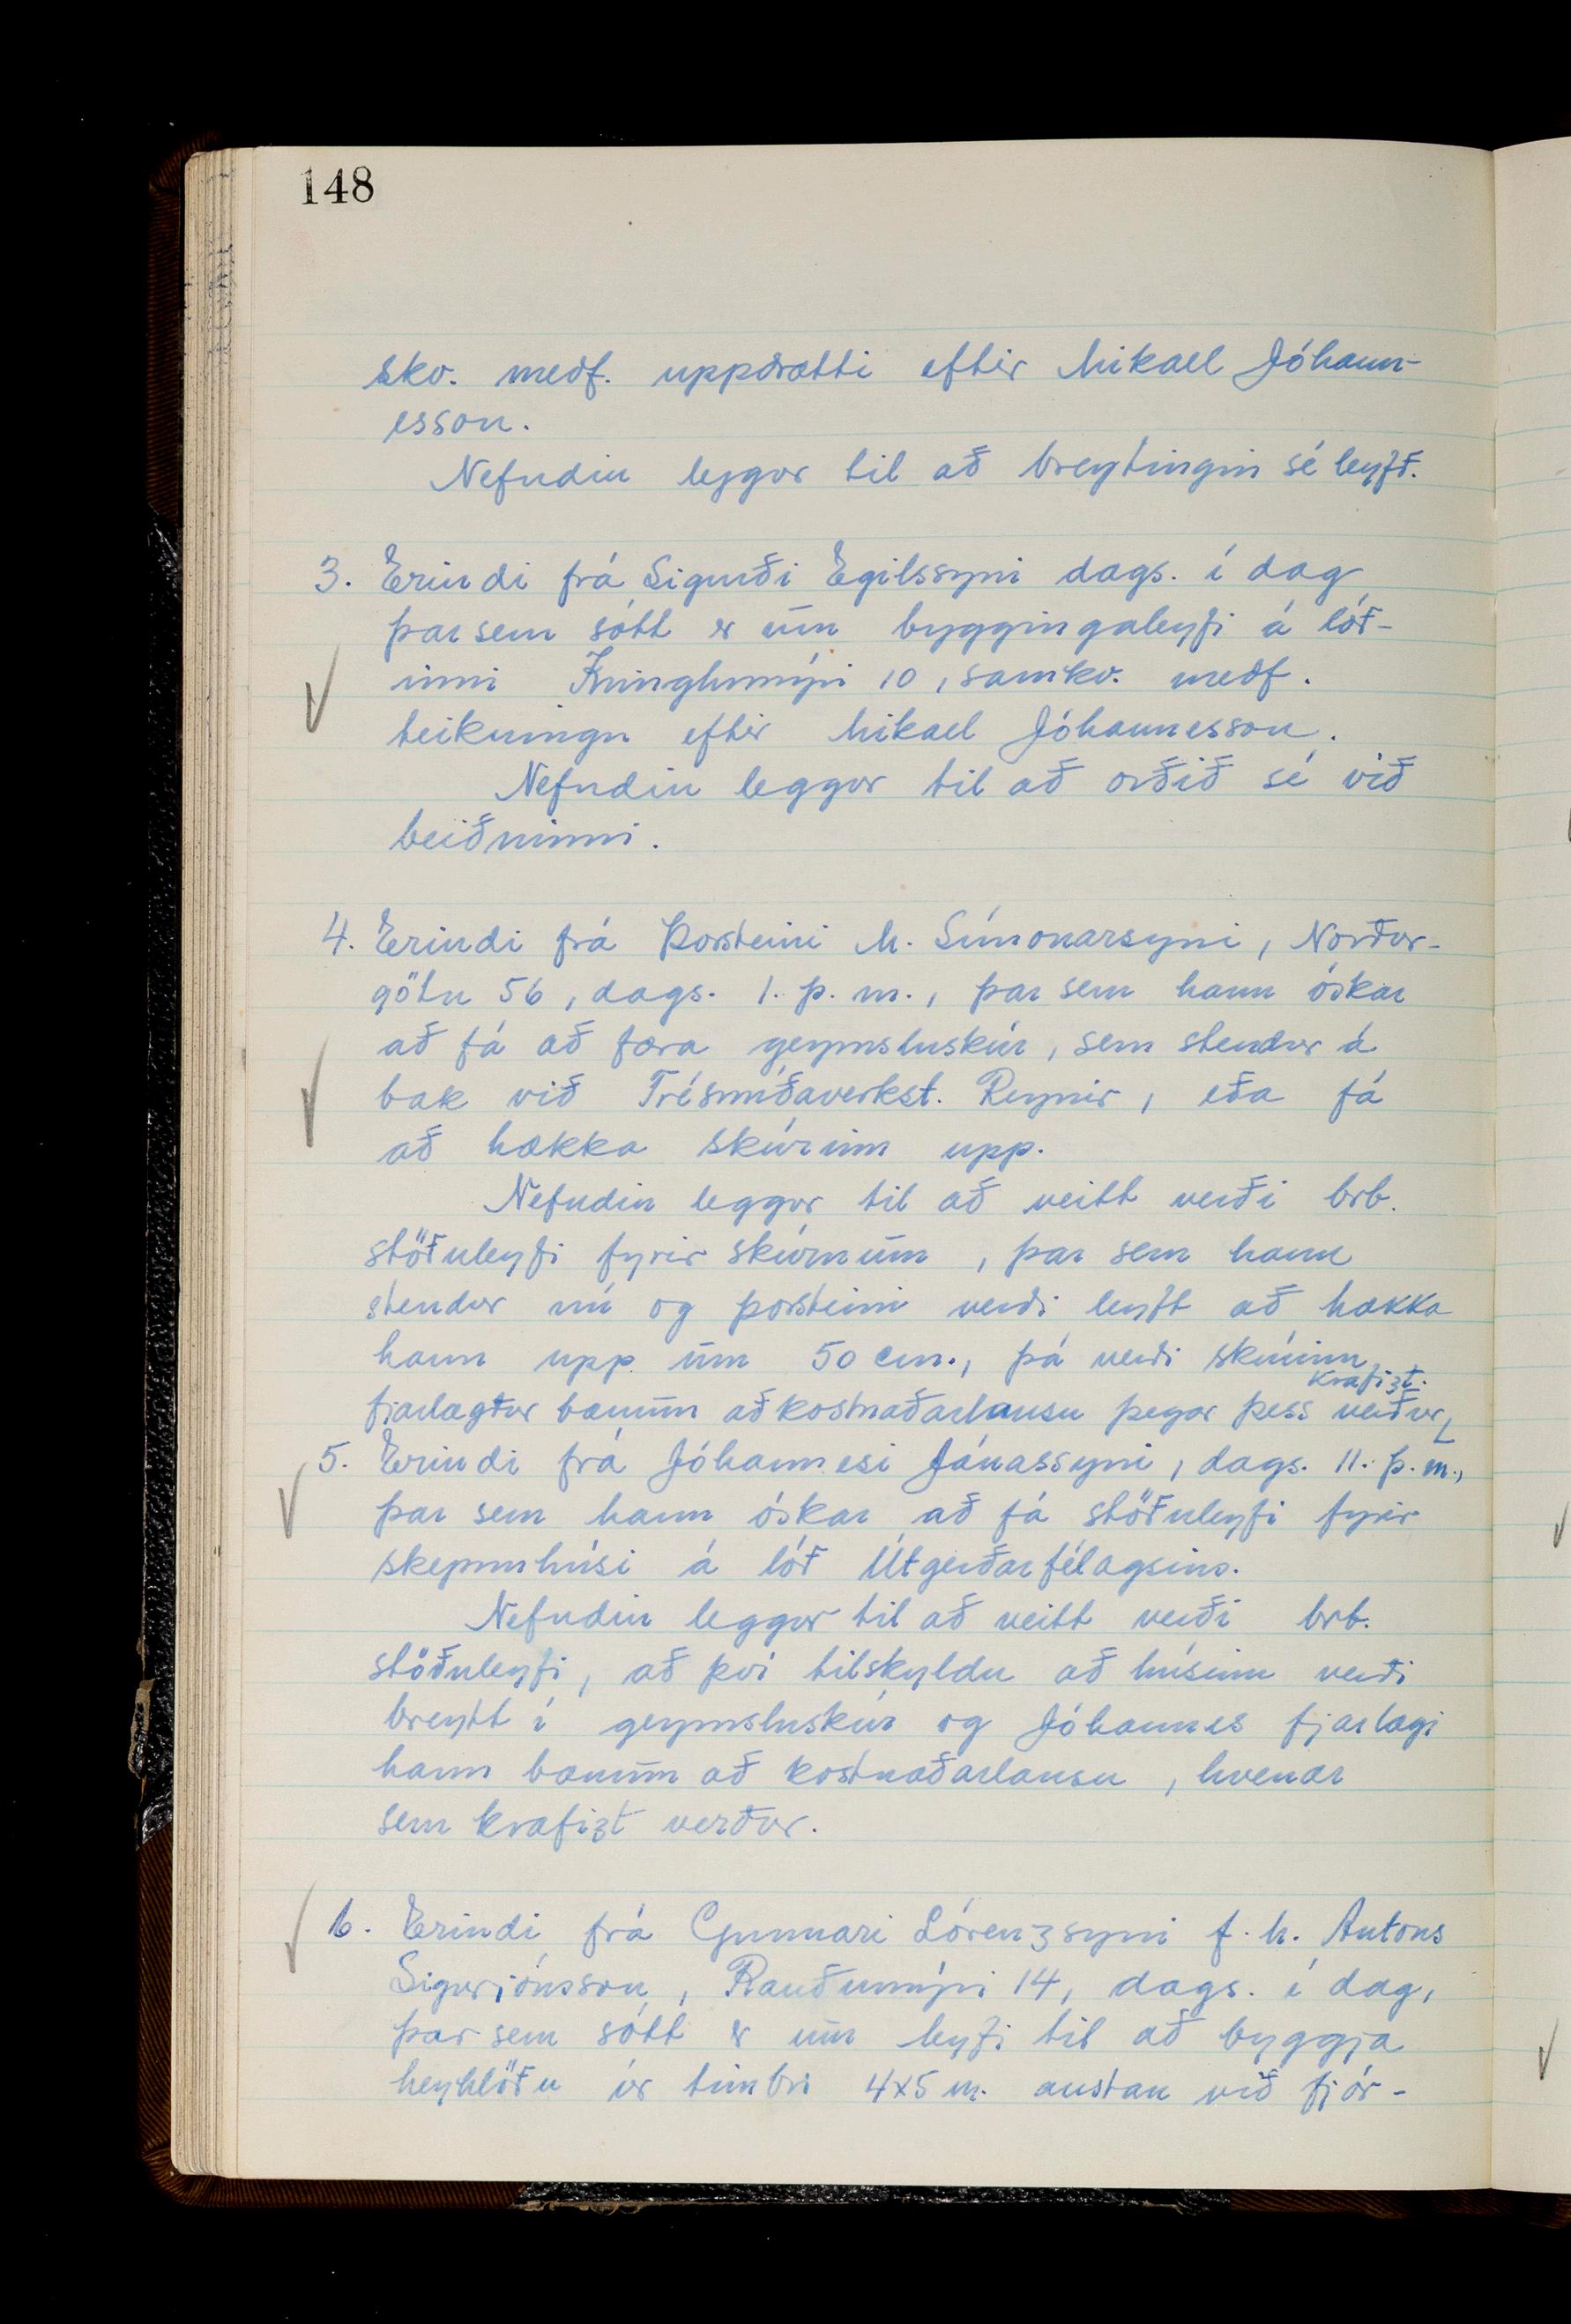 148
skv. meðf. uppdrætti eftir Mikael Jóhann-
esson.
Nefndin leggur til að breytingin sé leyfð.
3. Erindi frá Sigurði Egilssyni dags. í dag
þar sem sótt er um byggingaleyfi á lóð-
inni Kringlumýri 10, samkv. meðf.
teikningu eftir Mikael Jóhannesson.
Nefndin leggur til að orðið sé við
beiðninni.
4. Erindi frá Þorsteini M. Símonarsyni, Norður-
götu 56, dags. 1. þ. m., þar sem hann óskar
að fá að færa geymsluskúr, sem stendur á
bak við Trésmíðaverkst. Reynir, eða fá
að hækka skúrinn upp.
Nefndin leggur til að veitt verði brb.
stöðuleyfi fyrir skúrnum, þar sem hann
stendur nú og þorsteini verði leyft að hækka
hann upp um 50 cm., þá verði skúrinn
fjarlægður bænum að kostnaðarlausu þegar þess verður krafizt.
5. Erindi frá Jóhannesi Jónassyni, dags. 11. þ. m.,
þar sem hann óskar að fá stöðuleyfi fyrir
skepnuhúsi á lóð Útgerðarfélagsins.
Nefndin leggur til að veitt verði brb.
stöðuleyfi, að því tilskyldu að húsinu verði
breytt í geymsluskúr og Jóhannes fjarlægi
hann bænum að kostnaðarlausu, hvenær
sem krafizt verður.
6. Erindi frá Gunnari Lórenzsyni f. h. Antons
Sigurjónsson, Rauðumýri 14, dags. í dag,
þar sem sótt er um leyfi til að byggja
heyhlöðu úr timbri 4x5 m. austan við fjár-